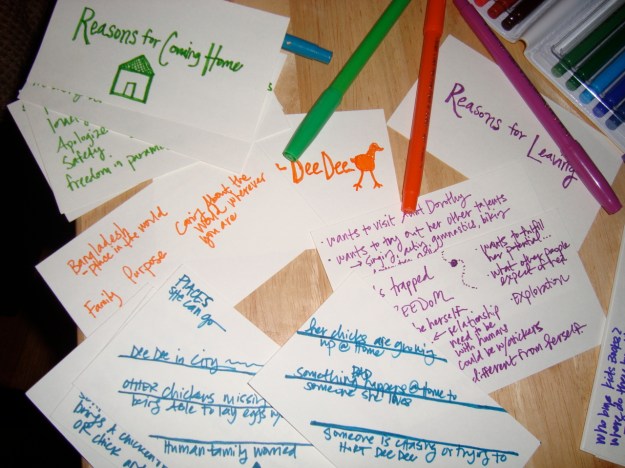 Reasons for Coming Home
Apologize
Safety
freedom in
Reasons for Leaving
Dee Dee
Caring About the
World wherever
you are
Bangladesh
- place in the world
Family Purpose
• wants to visit Aunt Dorothy
• wants to try out her other talents
→ singing, acting, gymnastics, biking
's trapped
EEDOM
be herself
relationship
need to be
with humans
could be w/chickens
different from herself
• wants to fulfill
her potential...
• what other people
expect of her
Exploration
PLACES
She can go
Dee Dee in city
OTHER chickens missing
being able to lay eggs
Human family worried
OR chick
her chicks are growing
up @ Home
something BAD happens @ home to
someone she loves
someone is chasing or trying to
HURT Dee Dee